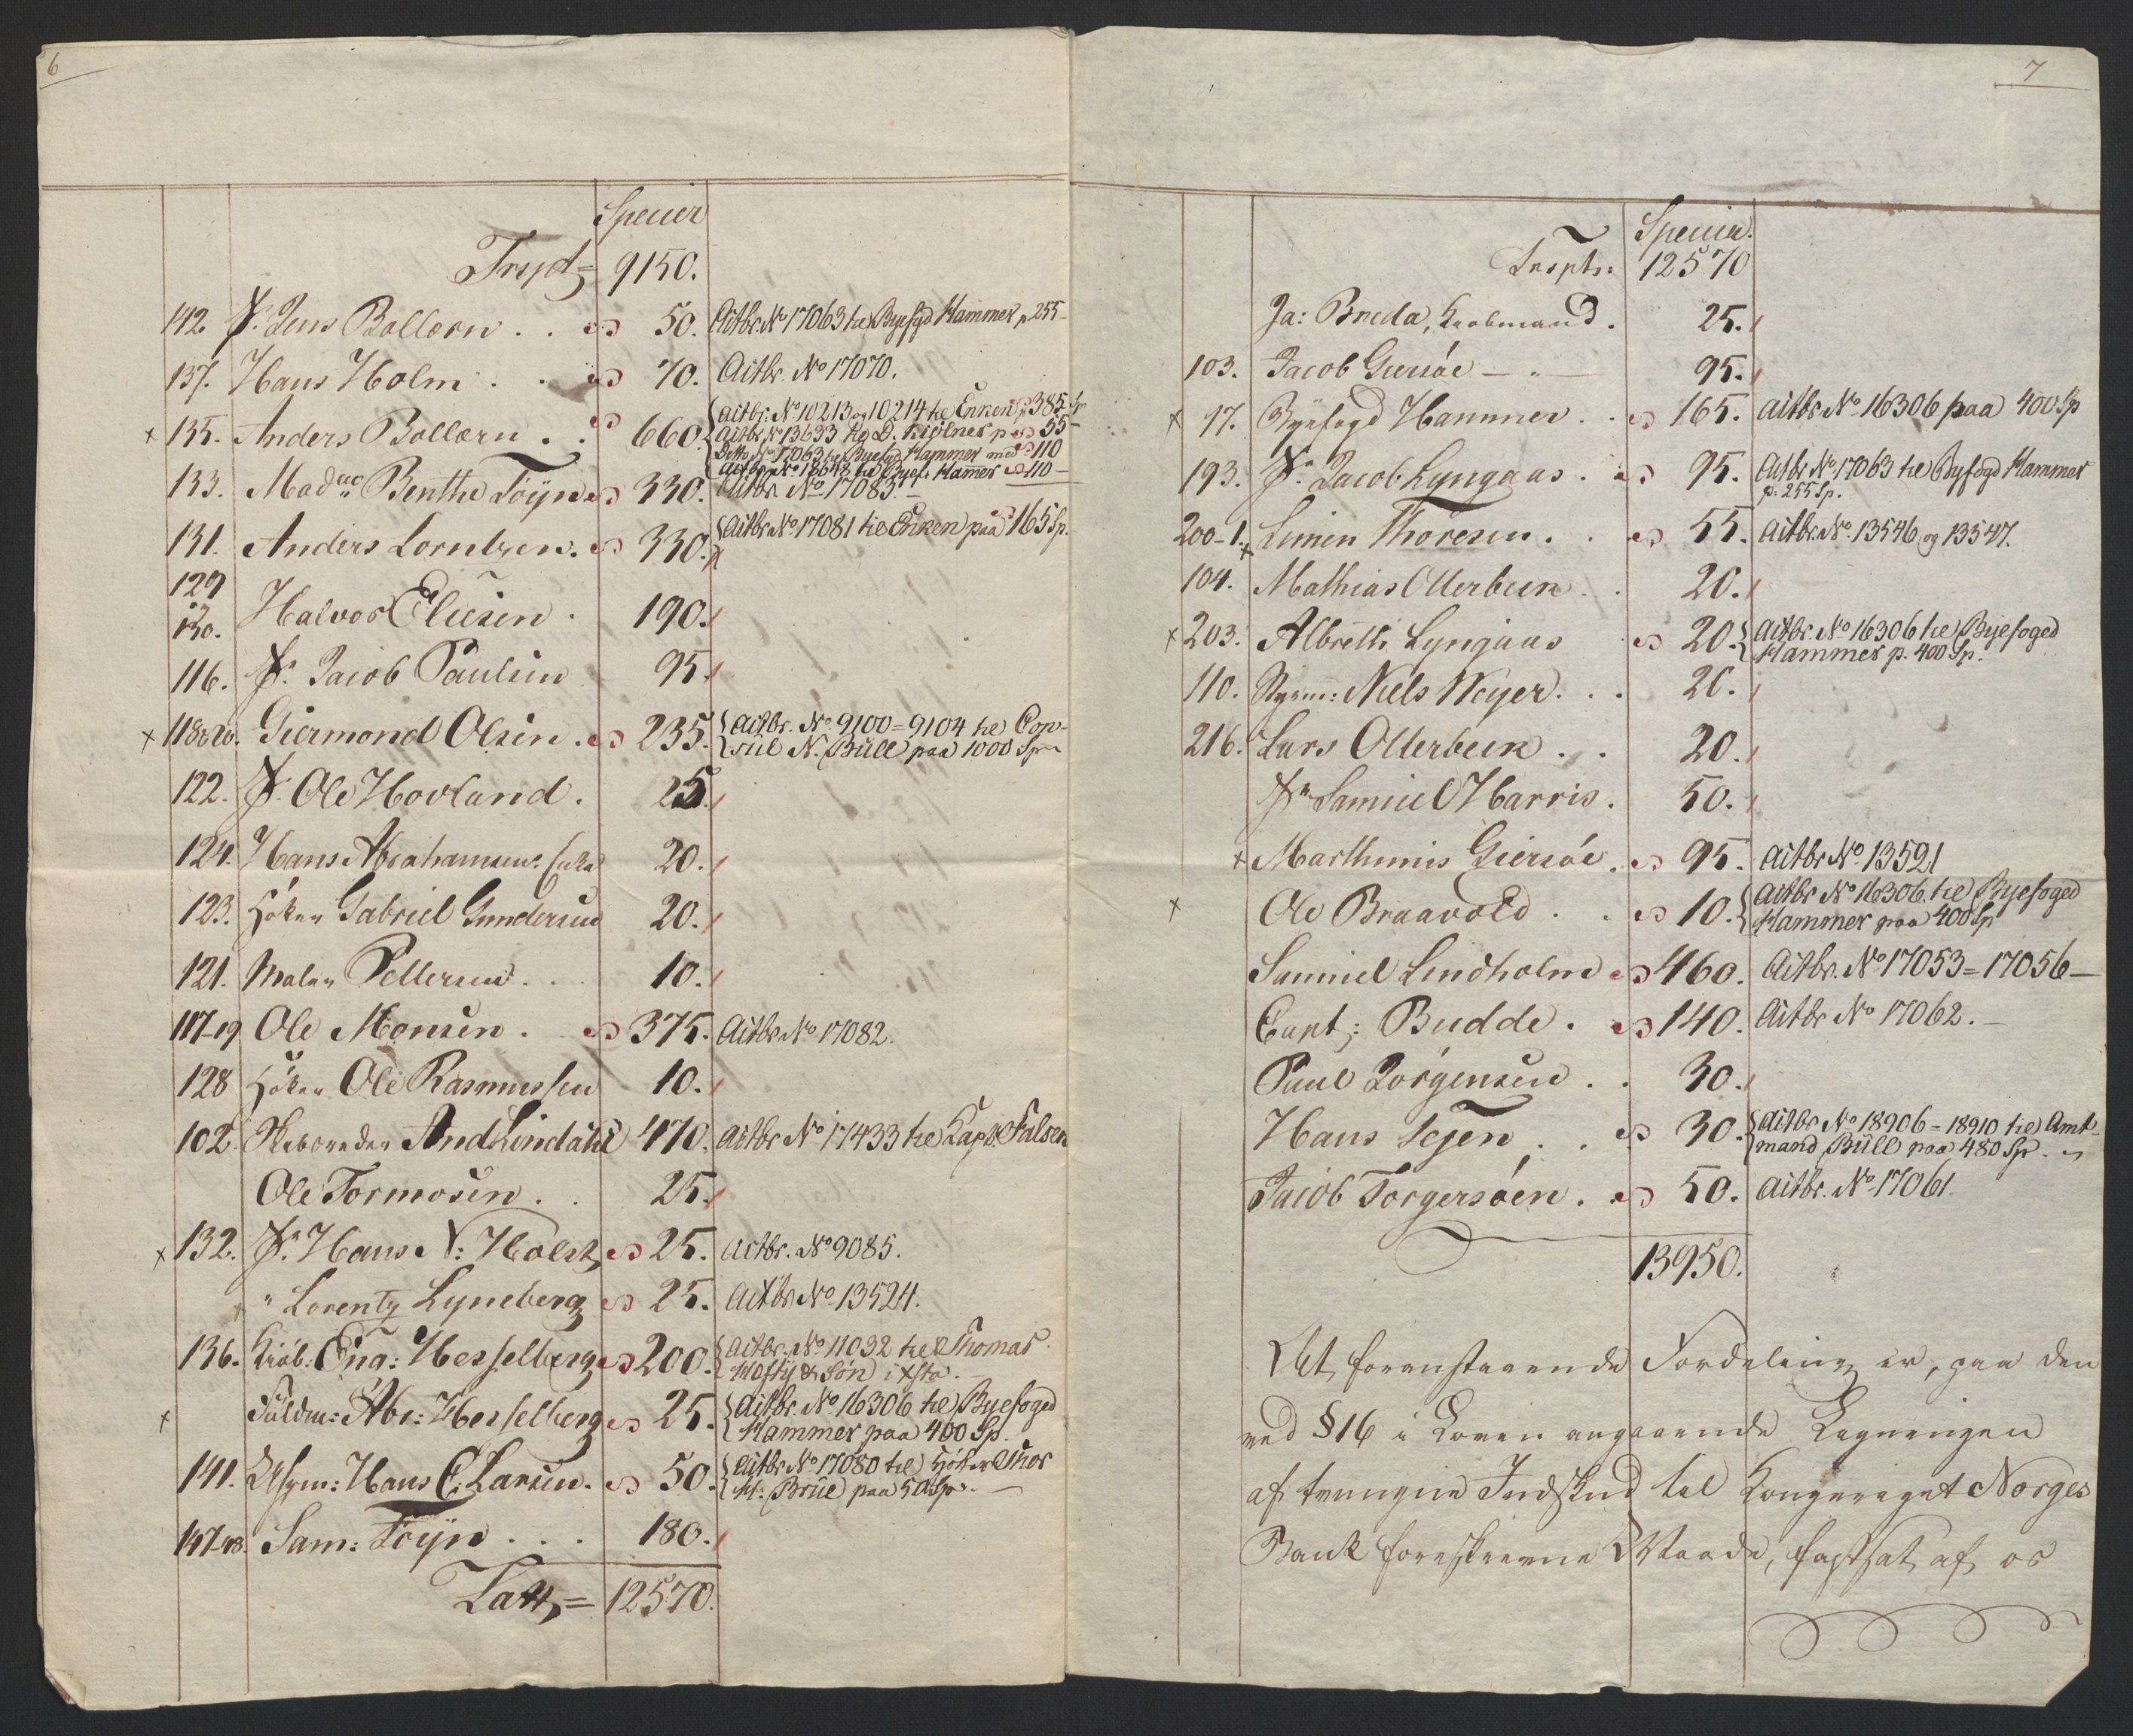 6
Specier
9150.
142. Jens Bollærn . . 50. Actbr. No 17063 til Byefgd Hammer p 255-
137. Hans Holm . . 70. Actbr. No 17070.
x 135. Anders Bollærn . . 660. Actbr: No 10213 og 10214 til Enken p 385 Sp
Actbr No 13633 til D. Kiølner p 55-
Ditto No 17063 til Byefgd Hammer med 110
Actbr No 18648 til Byef. Hamer 110-
133. Madme Benthe Föyn 330. Actbr No 17083.-
131. Anders Lorntzen. 330. Actbr No 17081 til Enken paa 165 Sp.
129
130. Halvor Eliesen . 190.
116. Jacob Paulsen 95.
x 118&20. Giermond Olsen . 235. Actbr. No 9100=9104 til Con-
sul N. Büll paa 1000 Sp
122. Ole Hovland . 25.
124. Hans Abrahamsen. 20.
123. Höker Gabriel Gundersen 20.
121. Maler Pettersen . . . 10.
117-19 Ole Monsen . 375. Actbr No 17082.
128 Höker Ole Rasmussen 10.
102. And Lindahl 470. Actbr No 17433 til Capt. Falsen
Ole Tormosen . . 25.
x 132. Hans N: Holst 25. Actbr. No 9085.
x " Lorentz Lyneberg 25. Actbr No 13524.
136. Kiöb: Eng: Hesselberg 200. Actbr. No 11032 til Thomas
& Søn i
x Fuldm: Abr: Hesselberg 25. Actbr. No 16306 til Byefoged
Hammer paa 400 Sp.
141. Hans C. Larsen . 50. Actbr No 17080 til Höker Thor
M. Brue paa 50 Sp. -
147-48. Sam: Föyn . . . 180.
Latt = 12570.
7
Specier.
Trspt: 12570
Ja: Breda, Kiøbmand . 25.
103. Jacob Giersöe - " - 95.
x 97. Byefogd Hammer . . 165. Actbr No 16306 paa 400 Sp
193. Jacob Lyngaas . 95. Actbr No 17063 til Byfogd Hammer
p. 255 Sp.
200-1. x Simen Thoresen . . 55. Actbr. No. 13546 og 13547.
104. Mathias Otterbeck . . 20.
x 203. Albreth Lyngaas 20. Actbr. No 16306 til Byefoged
Hammer p. 400 Sp.
110. Styrm: Niels Weyer . . . 20.
216. Lars Otterbeck . . . 20.
Samuel Harris . 50.
x Marthinis Giersöe . 95. Actbr No 13521
x Ole Braavold . . 10. Actbr No 16306. til Byefoged
Hammer paa 400 Sp
Samuel Lindholm 460. Actbr. No 17053=17056-
Capt: Budde . 140. Actbr No 17062.-
Paul Jörgensen . . 30.
Hans Tejen . . 30. Actbr No 18906=18910 til Amt-
mand Büll paa 480 Sp.
Jacob Torgersöen . 50. Actbr. No 17061.
13950.
At foranstaaende Fordeling er, paa den
ved §16 i Loven angaaende Tegningen
af tvungne Indskud til Kongeriget Norges
Bank foreskrevne Maade, fastsat af os